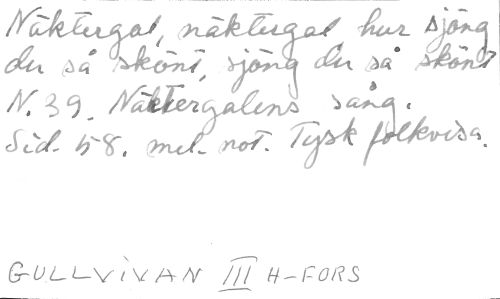 Näktergal, näktergal hur sjöng
du så skönt, sjöng du så skönt
N. 39. Näktergalens sång.
Sid. 58. mel. not. Tysk folkvisa.
GULLVIVAN III H-FORS